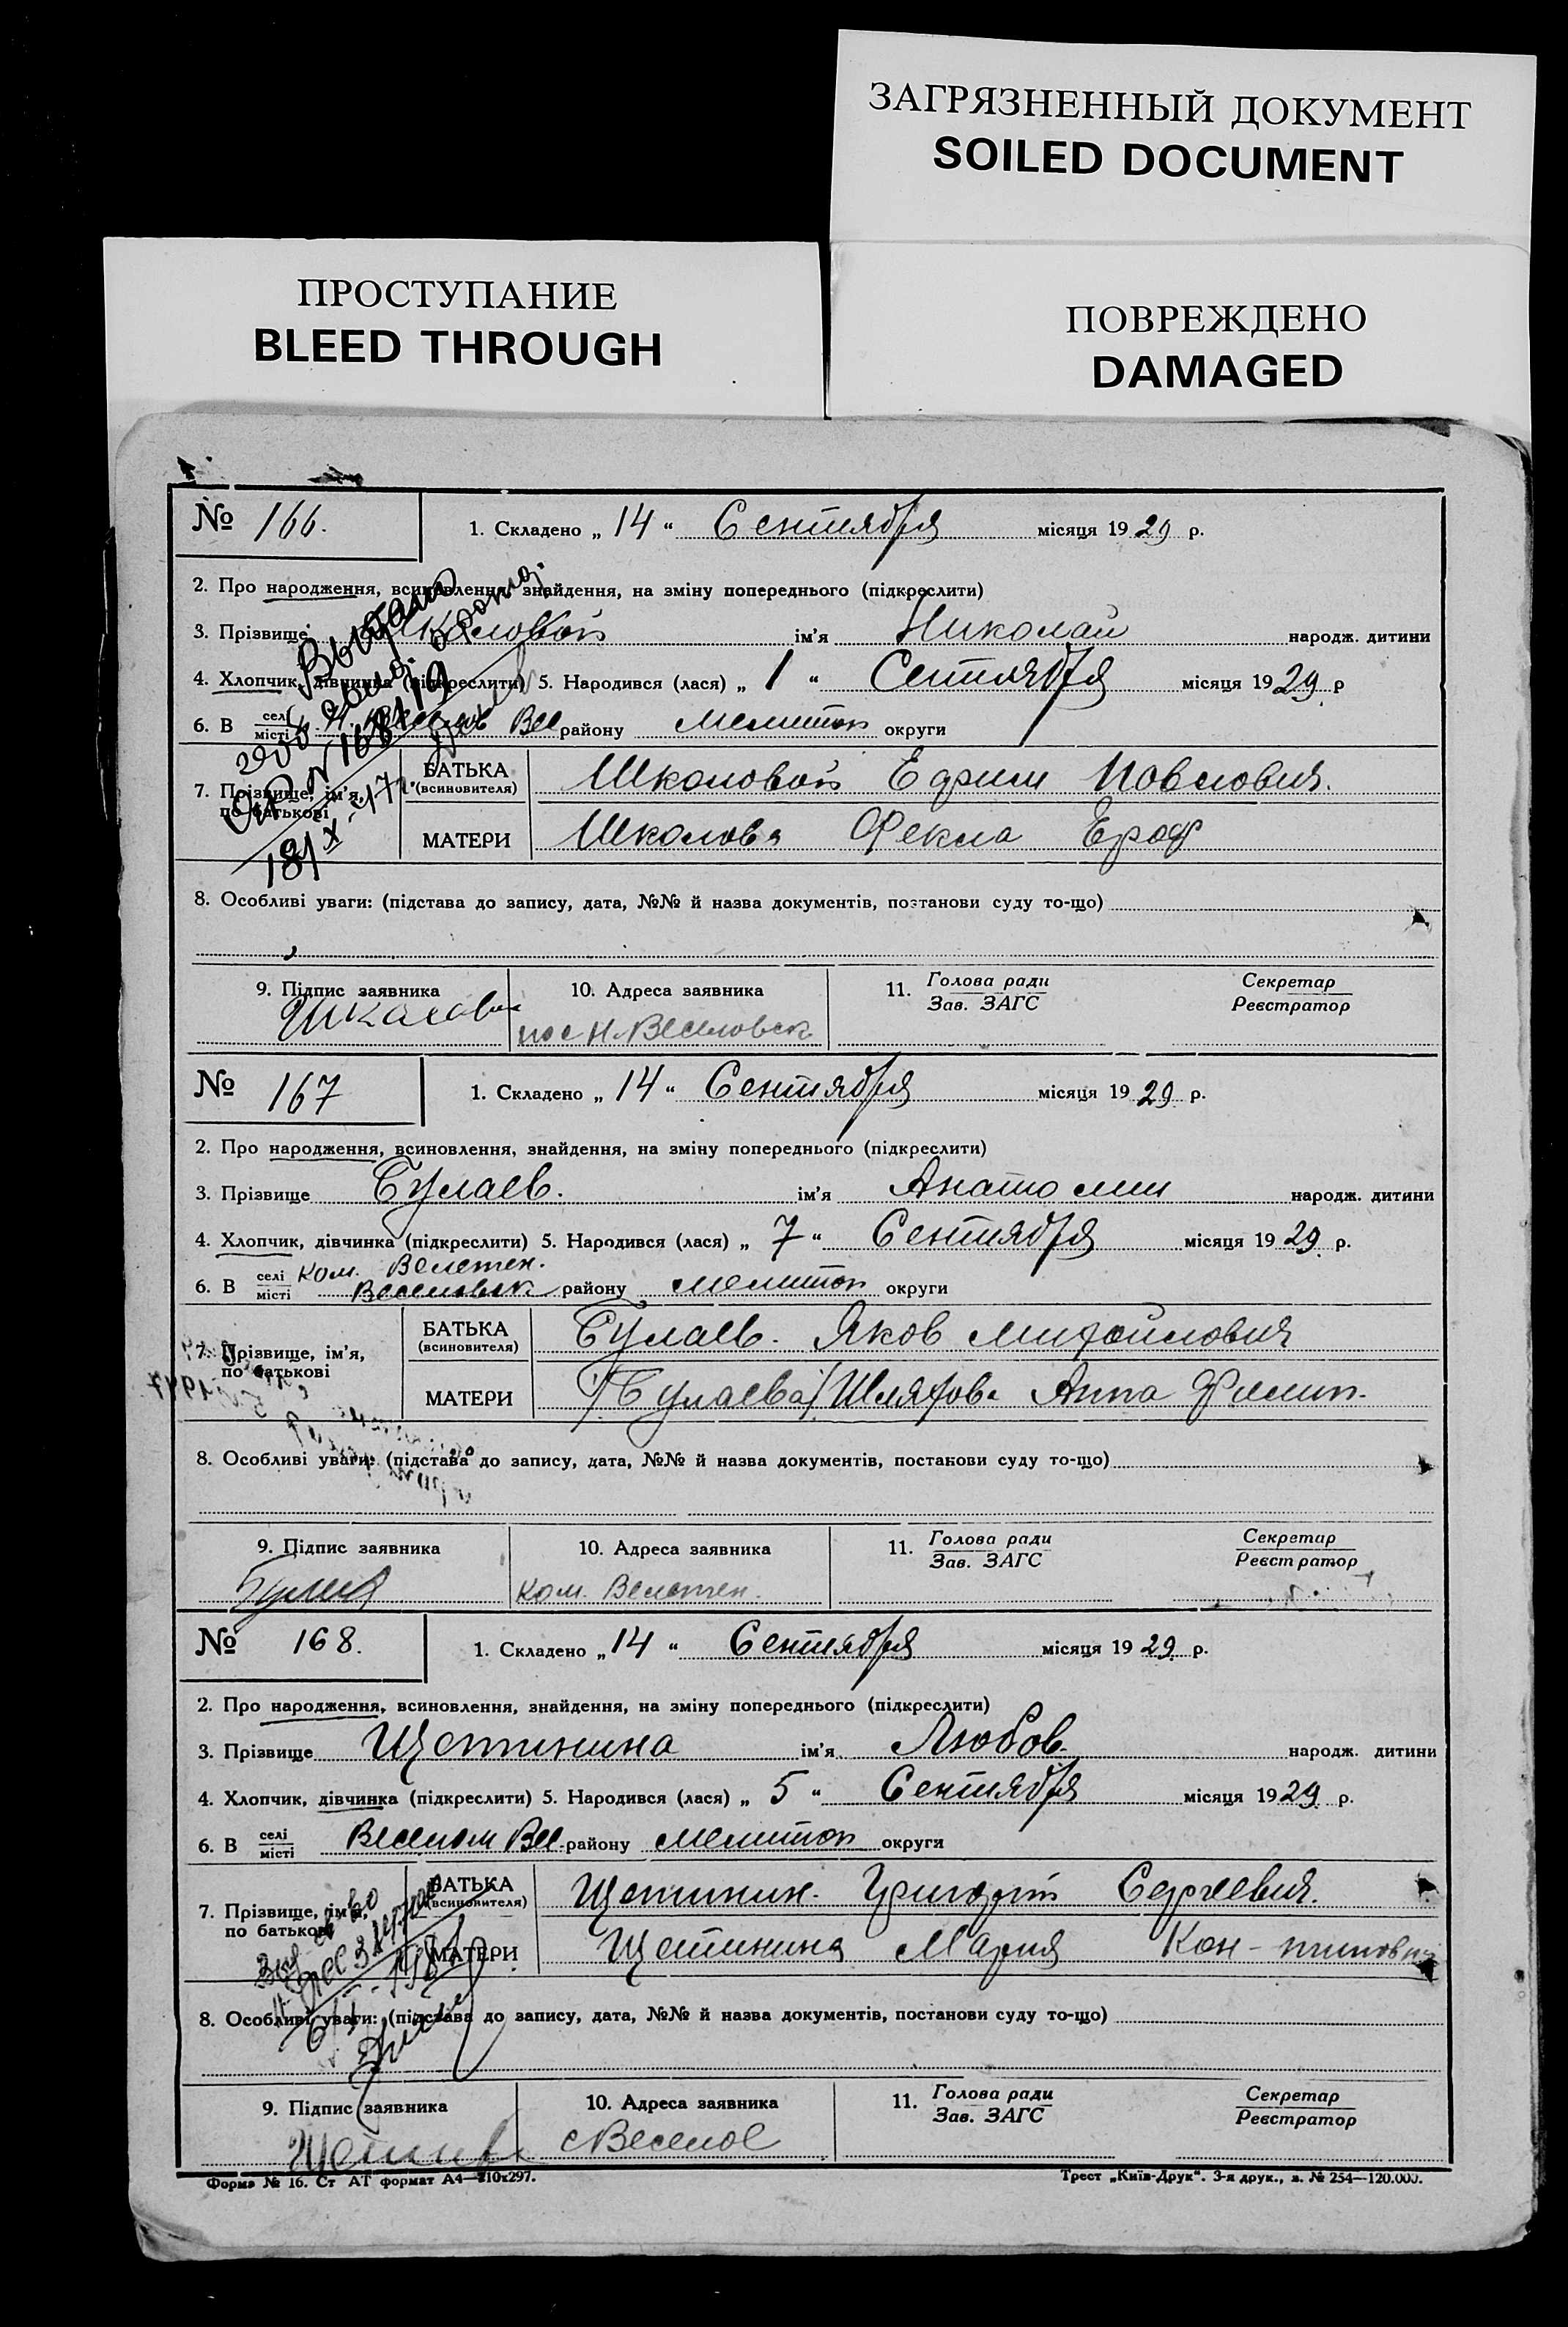 ЗАГРЯЗНЕННЫЙ ДОКУМЕНТ
SOILED DOCUMENT
ПРОСТУПАНИЕ
BLEED THROUGH
ПОВРЕЖДЕНО
DAMAGED
№ 166. 1. Складено „ 14 “ Сентября місяця 1929 р.
2. Про народження, всиновлення, знайдення, на зміну попереднього (підкреслити)
3. Прізвище Школовой ім'я Николай народж. дитини
4. Хлопчик, дівчинка (підкреслити) 5. Народився (лася) „ 1 “ Сентября місяця 1929 р
6. В селі місті Вес району Мелитоп округи
7. Прізвище, ім'я, по батькові
БАТЬКА (всиновителя) Школовой Ефрим Повлович.
МАТЕРИ Школова Фекла Ероф
8. Особливі уваги: (підстава до запису, дата, №№ й назва документів, постанови суду то-що)
9. Підпис заявника 10. Адреса заявника 11. Голова ради Зав. ЗАГС Секретар Реєстратор
Школова пос Н. Веселовск
№ 167 1. Складено „ 14 “ Сентября місяця 1929 р.
2. Про народження, всиновлення, знайдення, на зміну попереднього (підкреслити)
3. Прізвище Булаев. ім'я Анатолий народж. дитини
4. Хлопчик, дівчинка (підкреслити) 5. Народився (лася) „ 7 “ Сентября місяця 1929 р.
6. В селі місті ком. Велетен. Веселовск району Мелитоп округи
7. Прізвище, ім'я, по батькові
БАТЬКА (всиновителя) Булаев. Яков Михайлович
МАТЕРИ /Булаева/ Шляхова Анна Филип.
8. Особливі уваги: (підстава до запису, дата, №№ й назва документів, постанови суду то-що)
9. Підпис заявника 10. Адреса заявника 11. Голова ради Зав. ЗАГС Секретар Реєстратор
ком. Велетен.
№ 168. 1. Складено „ 14 “ Сентября місяця 1929 р.
2. Про народження, всиновлення, знайдення, на зміну попереднього (підкреслити)
3. Прізвище Щетинина ім'я Любов народж. дитини
4. Хлопчик, дівчинка (підкреслити) 5. Народився (лася) „ 5 “ Сентября місяця 1929 р.
6. В селі місті Веселом Вес району Мелитоп округи
7. Прізвище, ім'я, по батькові
БАТЬКА (всиновителя) Щетинин. Григорій Сергеевич.
МАТЕРИ Щетинина Мария Кон-тиновна
8. Особливі уваги: (підстава до запису, дата, №№ й назва документів, постанови суду то-що)
9. Підпис заявника 10. Адреса заявника 11. Голова ради Зав. ЗАГС Секретар Реєстратор
с Веселое
Форма № 16. Ст АТ формат А4—210x297. Трест „Київ-Друк“. 3-я друк., з. № 254—120.000.